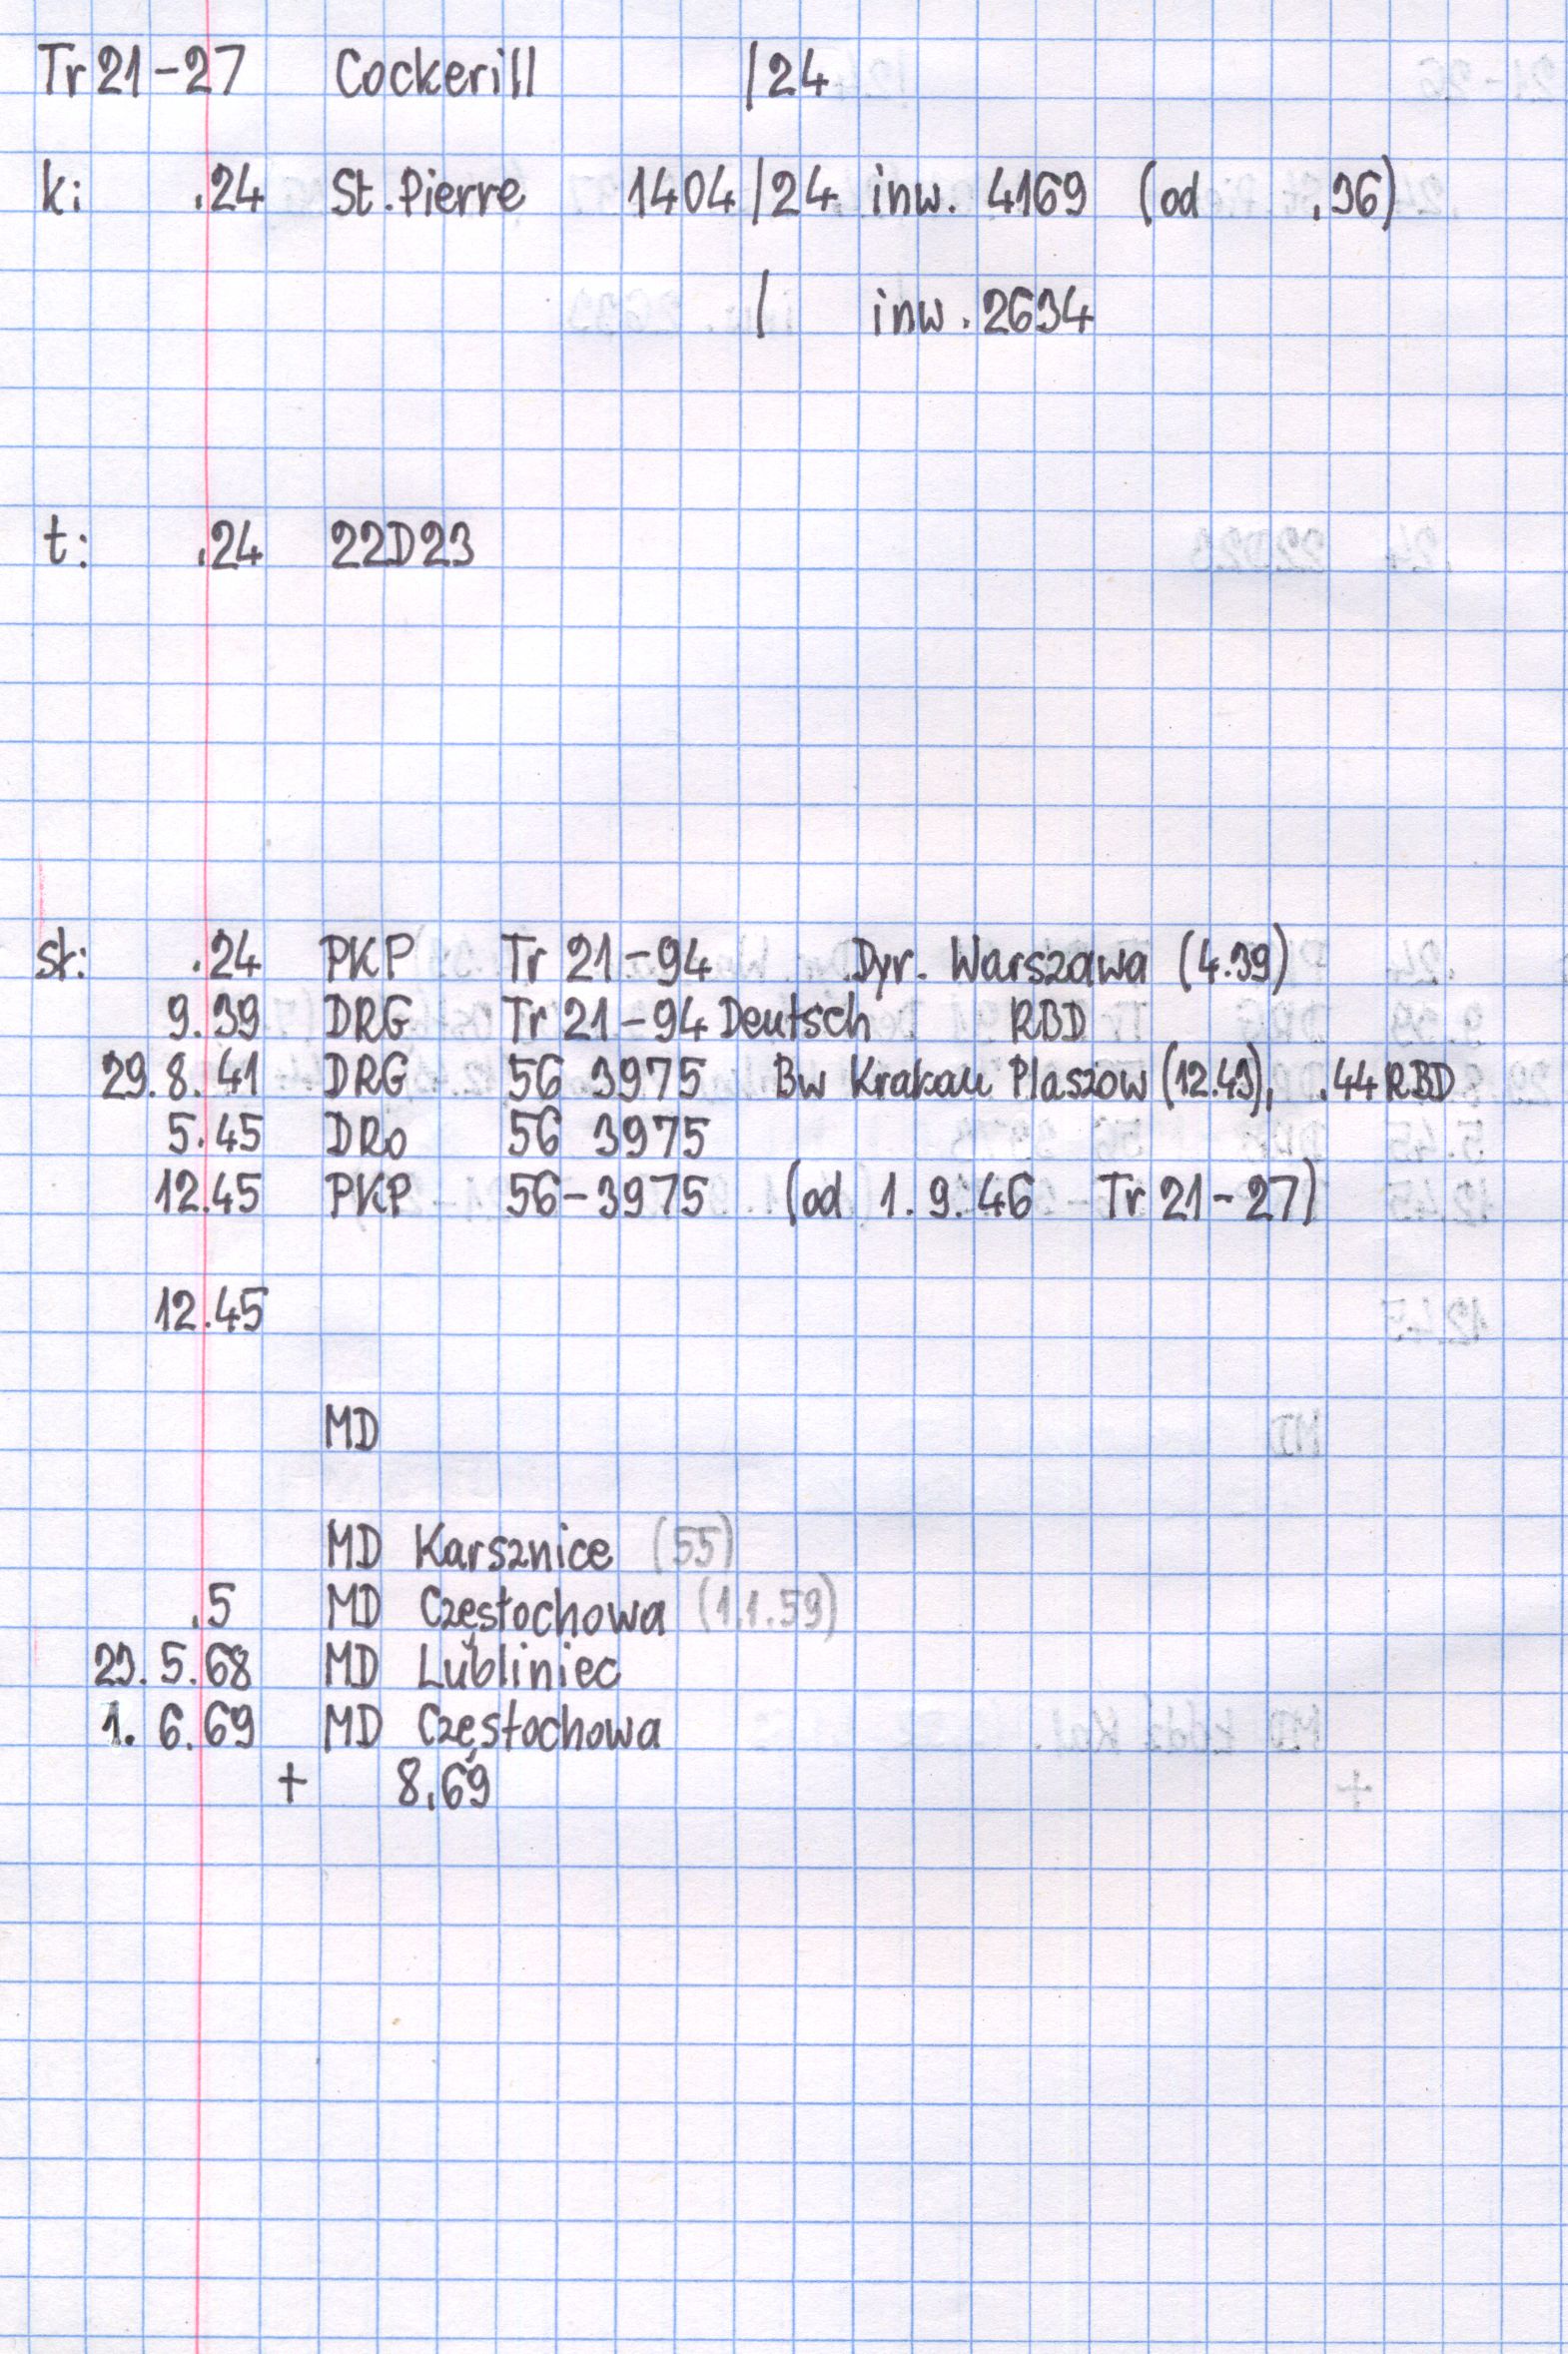 Tr 21-27 Cockerill /24
k: .24 St. Pierre 1404/24 inw. 4169 (od .36)
/ inw. 2634
t: .24 22D23
st: .24 PKP Tr 21-94 Dyr. Warszawa (4.39)
9.39 DRG Tr 21-94 Deutsch RBD
29.8.41 DRG 56 3975 Bw Krakau Plaszow (12.43), .44 RBD
5.45 DRo 56 3975
12.45 PKP 56-3975 (od 1.9.46 Tr 21-27)
12.45
MD
MD Karsznice (55)
.5 MD Częstochowa (1.1.59)
23.5.68 MD Lubliniec
1.6.69 MD Częstochowa
+ 8.69